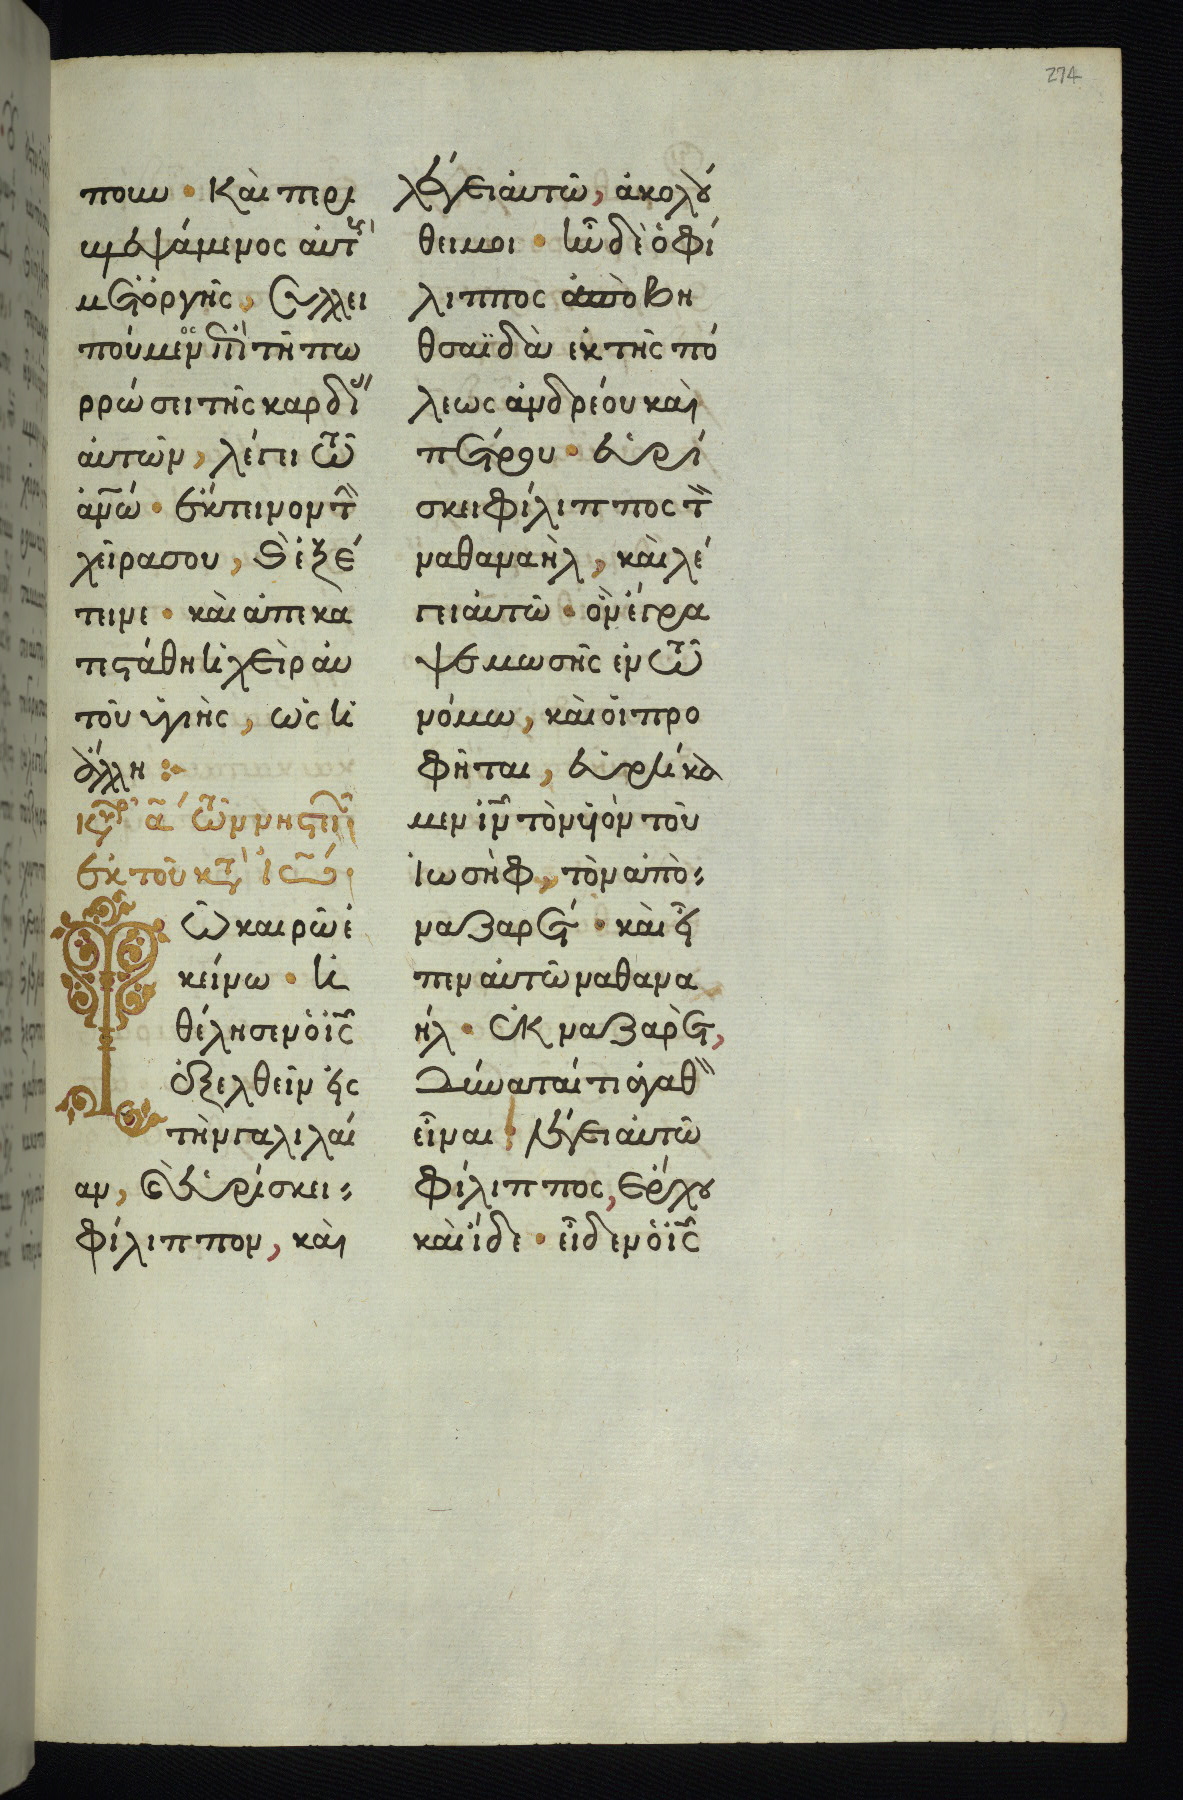 274
πουν · Καὶ περι
βλεψάμενος αὐτοὺς
μετ' ὀργῆς, συλλυ
πούμενος ἐπὶ τῇ πω
ρρώσει τῆς καρδίας
αὐτῶν, λέγει τῷ
ἀνῶ · ἔκτεινον τὴν
χεῖρα σου, καὶ ἐξέ
τεινε · καὶ ἀπεκα
τεστάθη ἡ χεὶρ αὐ
τοῦ ὑγιὴς, ὡς ἡ
ἄλλη :
κυρ α τῶν νηστειῶν
ἐκ τοῦ κατ Ἰω
Τῷ καιρῷ ἐ
κείνω · ἠ
θέλησεν ὁ ἰς
ἐξελθεῖν εἰς
τὴν γαλιλαί
αν, καὶ εὑρίσκει
φίλιππον, καὶ
λέγει αὐτῶ, ἀκολού
θει μοι · ἦν δὲ ὁ φί
λιππος ἀπὸ βη
θσαϊδὰ ἐκ τῆς πό
λεως ἀνδρέου καὶ
πέτρου · εὑρί
σκει φίλιππος τὸν
ναθαναὴλ, καὶ λέ
γει αὐτῶ · ὃν ἔγρα
ψε μωσῆς ἐν τῷ
νόμω, καὶ οἱ προ
φῆται, εὑρήκα
μεν ἰν τὸν υἱὸν τοῦ
Ἰωσὴφ, τὸν ἀπὸ
ναζαρέτ · καὶ εἶ
πεν αὐτῶ ναθανα
ήλ · ἐκ ναζαρὲτ,
δύναταί τι ἀγαθὸν
εἶναι · λέγει αὐτῶ
φίλιππος, ἔρχου
καὶ ἴδε · εἶδεν ὁ ἰς